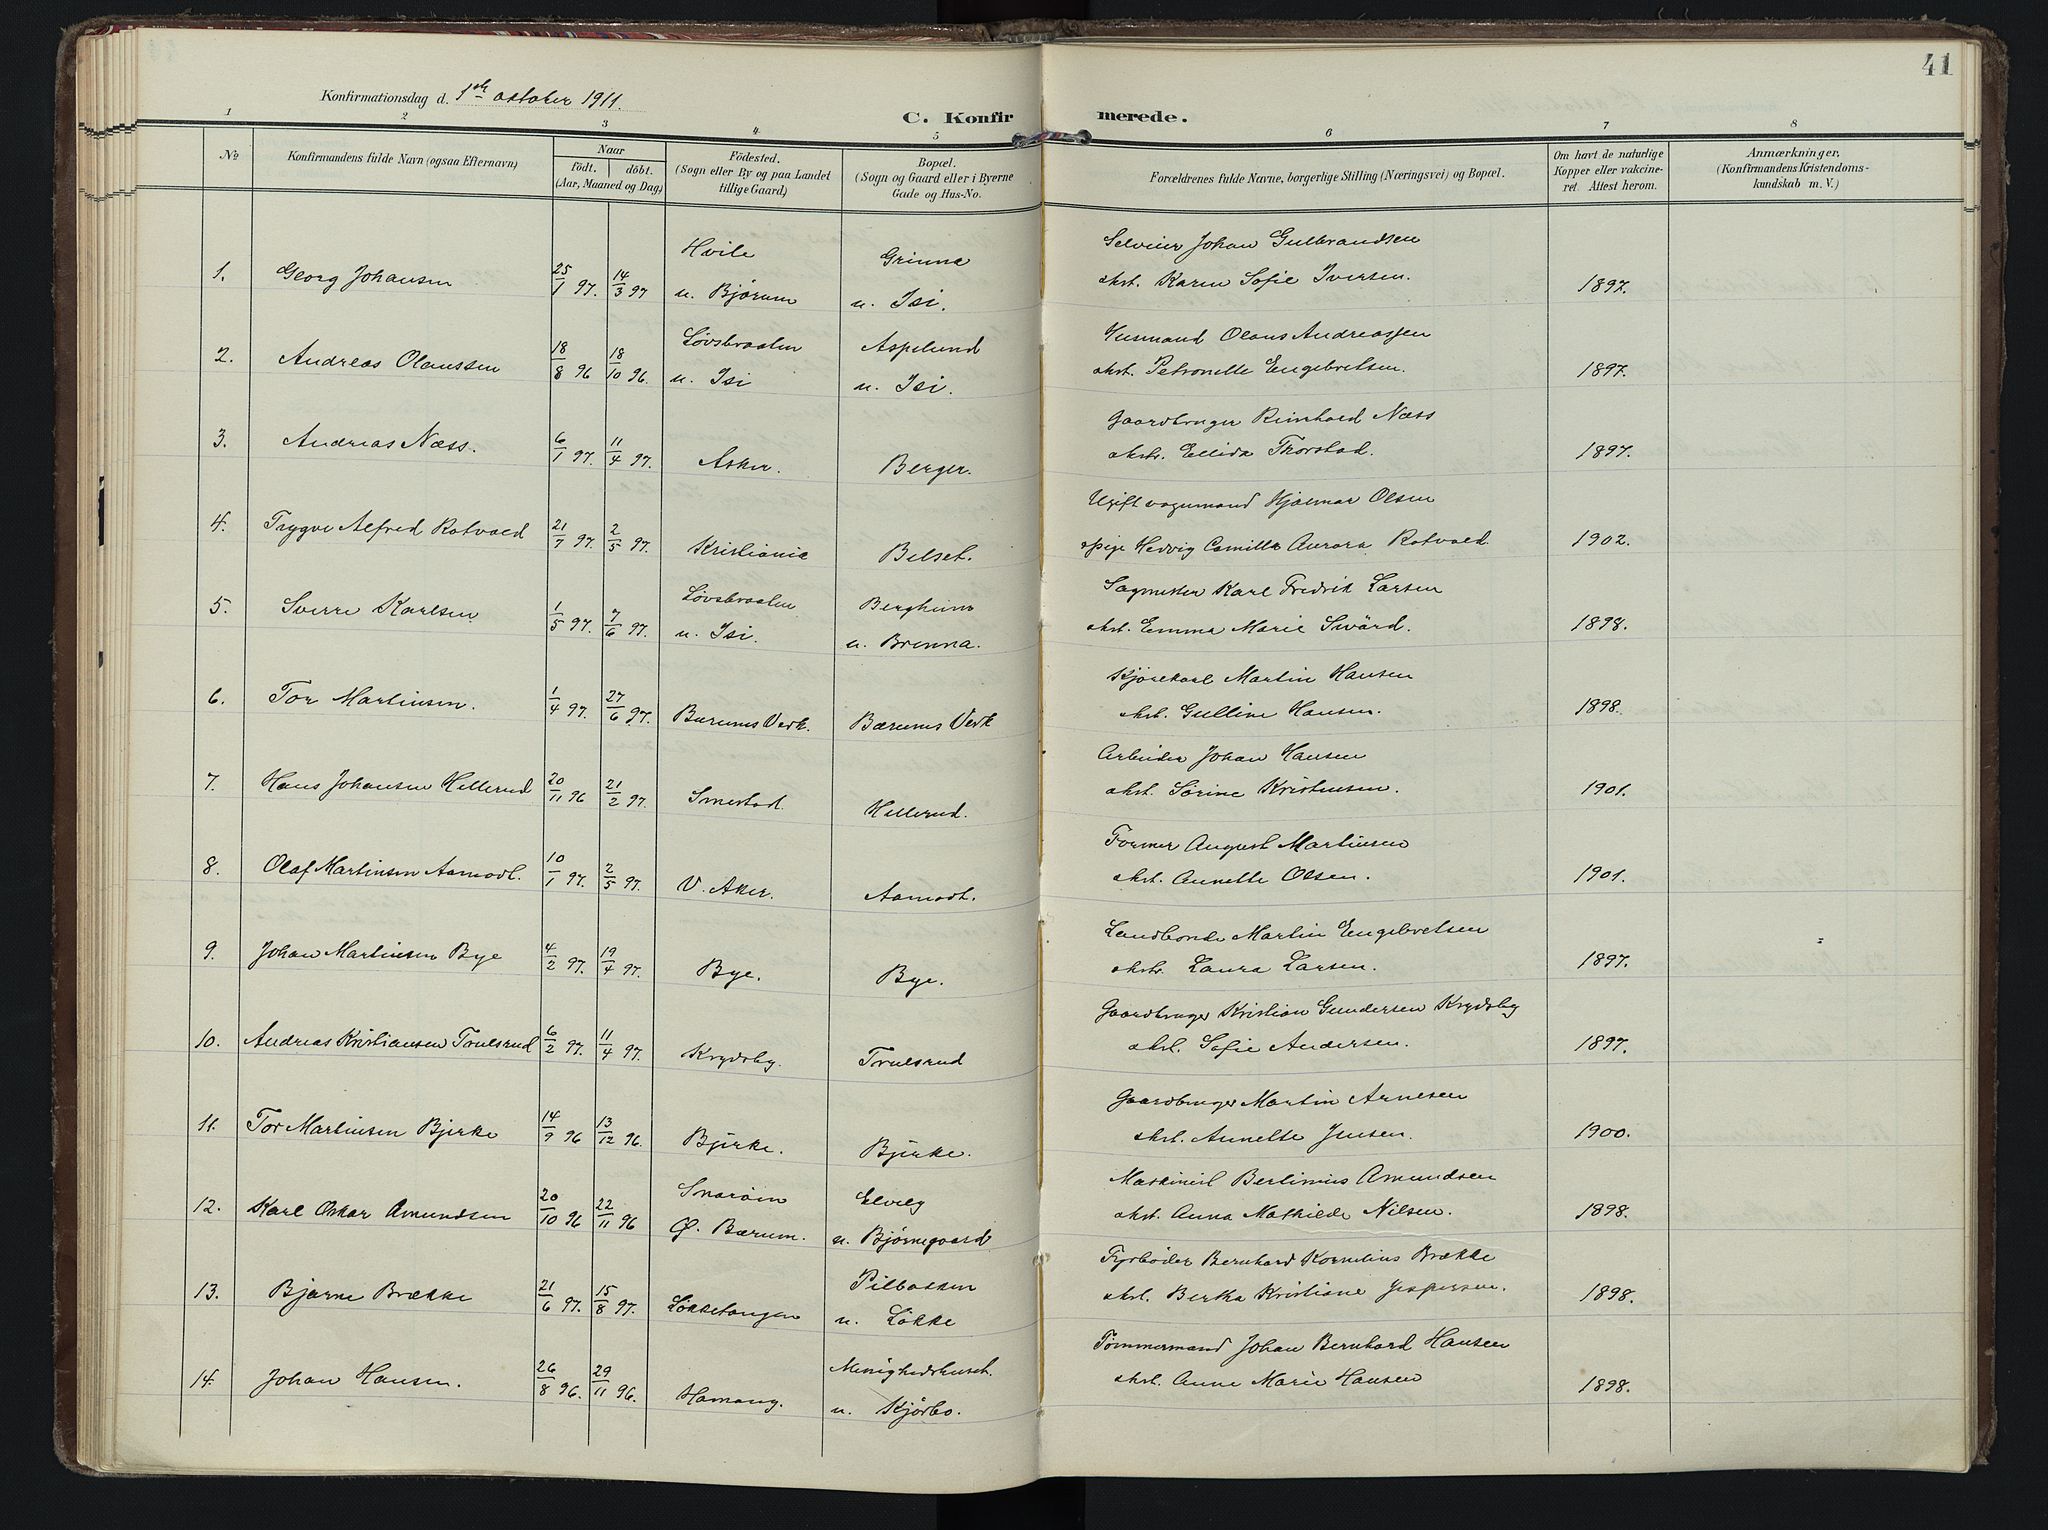 41
Konfirmationsdag d. 1ste oktober 1911.
C. Konfirmerede.
1 2 3 4 5 6 7 8
No
Konfirmandens fulde Navn (ogsaa Efternavn)
Naar
födt. döbt.
(Aar, Maaned og Dag)
Födested.
(Sogn eller By og paa Landet
tillige Gaard)
Bopæl.
(Sogn og Gaard eller i Byerne
Gade og Hus-No.
Forældrenes fulde Navne, borgerlige Stilling (Næringsvei) og Bopæl.
Om havt de naturlige
Kopper eller vakcine-
ret. Attest herom.
Anmærkninger,
(Konfirmandens Kristendoms-
kundskab m. V.)
1. Georg Johansen 25/1 97. 14/3 97 Hvile u. Bjørum Grinna u. Isi. Selveier Johan Gulbrandsen
Karen Sofie Iversen. 1897.
2. Andreas Olaussen 18/8 96 18/10 96. Løvsbraaten u. Isi Aspelund u. Isi. Husmand Olaus Andreassen
Petronelle Engebretsen. 1897.
3. Andreas Næss. 6/1 97. 11/4 97. Asker. Berger. Gaardbruger Reinhold Næss
Ellida Thorstad. 1897.
4. Trygve Alfred Rotvold 21/7 97. 2/5 97. Kristiania Belset. Ugift vognmand Hjalmar Olsen
pige Hedvig Camilla Aurora Rotvold. 1902.
5. Sverre Karlsen 1/5 97. 7/6 97. Løvsbraaten u. Isi. Bergheim u. Brenna. Sagmester Karl Fredrik Larsen
Emma Marie Swärd. 1898.
6. Tor Martinsen. 1/4 97. 27/6 97. Bærums Verk. Bærums Verk Kjørekarl Martin Hansen
Gulline Hansen. 1898.
7. Hans Johansen Hellerud 20/11 96 21/2 97. Smestad. Hellerud. Arbeider Johan Hansen
Sørine Kristensen. 1901.
8. Olaf Martinsen Aamodt. 10/1 97. 2/5 97. V. Aker. Aamodt. Former August Martinsen
Annette Olsen. 1901.
9. Johan Martinsen Bye 4/2 97. 19/4 97. Bye. Bye. Landbonde Martin Engebretsen
Laura Larsen. 1897.
10. Andreas Kristiansen Toulsrud 6/2 97. 11/4 97. Krydsby. Toulsrud Gaardbruger Kristian Gundersen Krydsby
Sofie Andersen. 1897.
11. Tor Martinsen Bjerke 14/9 96 13/12 96. Bjerke. Bjerke. Gaardbruger Martin Arnesen
Annette Jensen. 1900.
12. Karl Oskar Amundsen 20/10 96 22/11 96 Snarøen Ø. Bærum. Elvely u. Bjørnegaard Maskinist Bertinius Amundsen
Anna Mathilde Nilsen. 1898.
13. Bjarne Brække 21/6 97. 15/8 97. Løkketangen Pilbakken u. Løkke Fyrbøder Bernhard Kornelius Brække
Bertha Kristiane Jespersen. 1898.
14. Johan Hansen. 26/8 96. 29/11 96. Hamang. Menighedshuset. u. Kjørbo. Tømmermand Johan Bernhard Hansen
Anne Marie Hansen 1898.